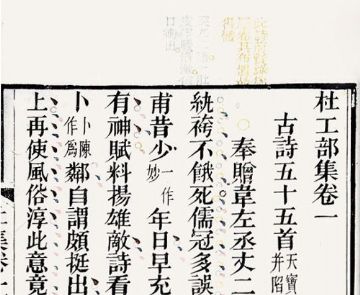 杜工部集卷一
古詩五十五首天寶并陷
奉贈韋左丞丈二
紈袴不餓死儒冠多誤
甫昔少一作妙年日早充
有神賦料揚雄敵詩看
卜卜陳作爲鄰自謂頗挺出
上再使風俗淳此意竟